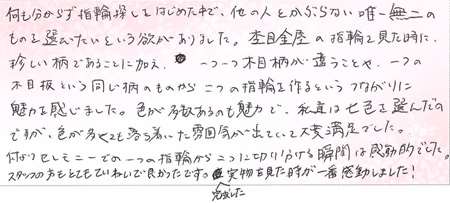 何も分からず指輪探しをはじめた中で、他の人とかぶらない唯一無二の
ものを選びたいという欲がありました。杢目金屋の指輪を見た時に、
珍しい柄であることに加え、一つ一つ木目柄が違うことや、一つの
木目板という同じ柄のものから二つの指輪を作るというつながりに
魅力を感じました。色が多数あるのも魅力で、私達は七色を選んだの
ですが、色が多くても落ち着いた雰囲気が出ていて大変満足でした。
セレモニーでの一つの指輪から二つに切り分ける瞬間は感動的でした。
スタッフのみなさんとてもていねいで良かったです。実物を見た時が一番感動しました!
完成した